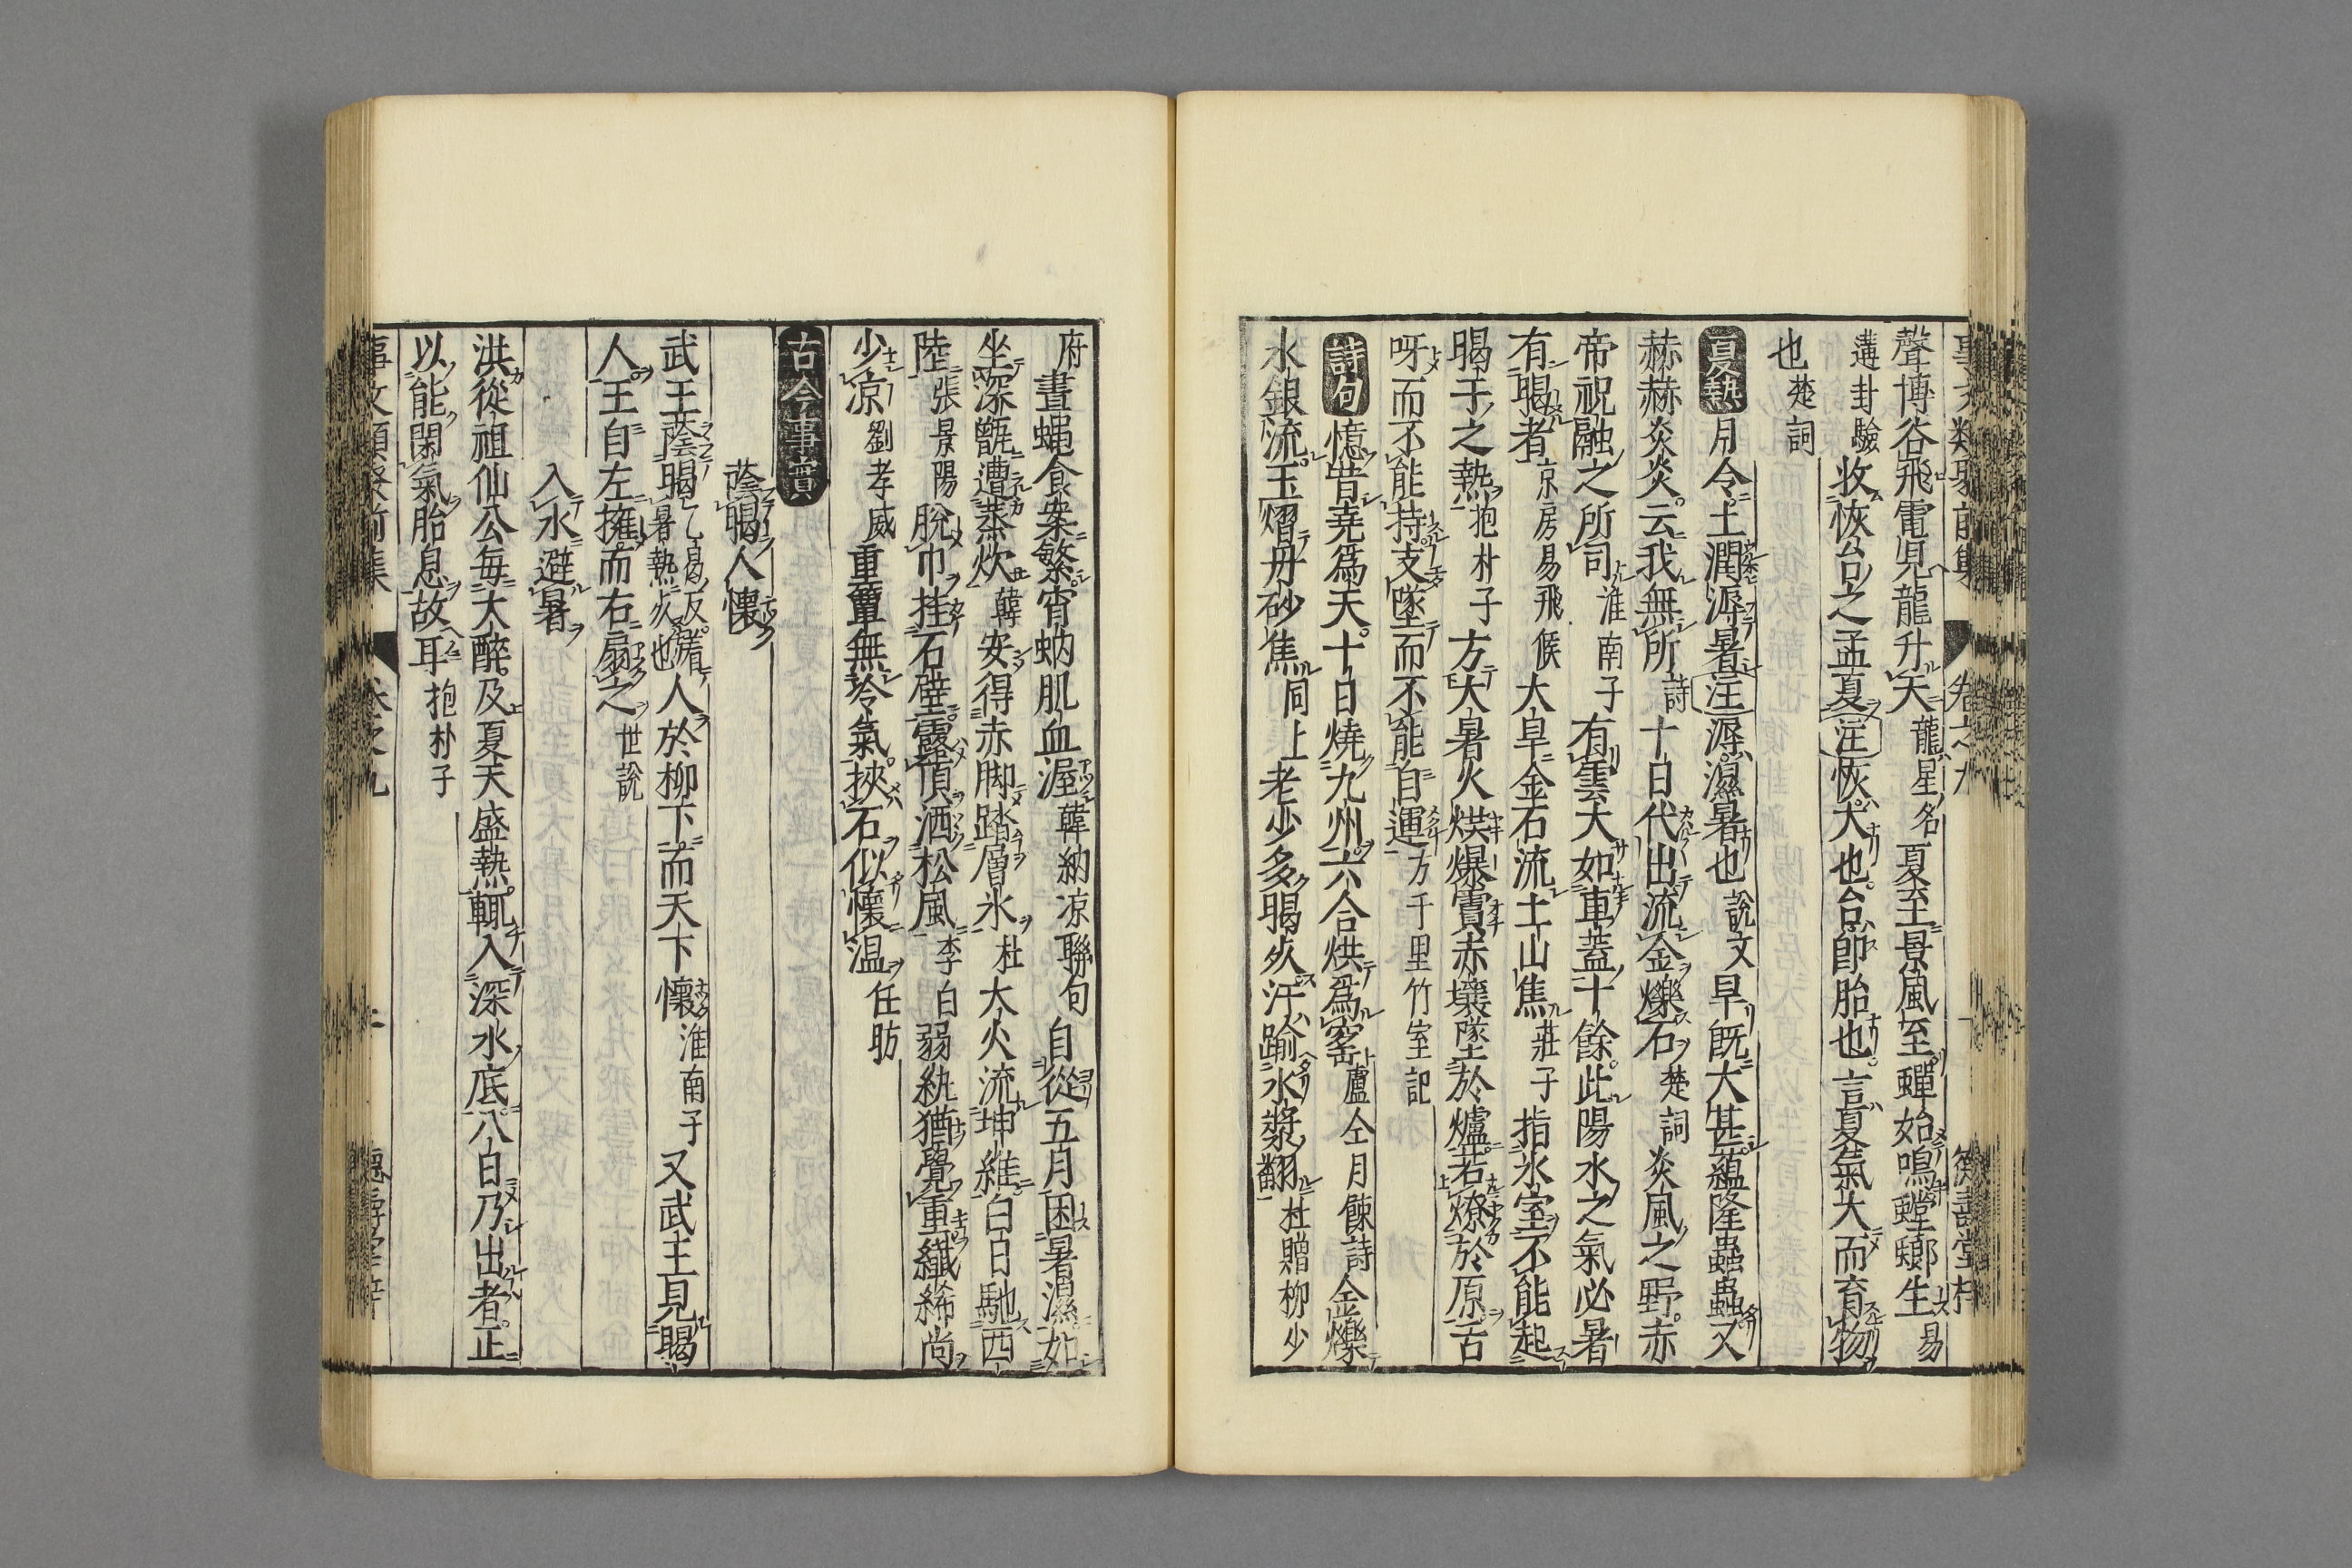 聲博谷飛電見龍升天龍星名夏至景風至蟬始鳴螳蜋生易
溝卦驗收恢台之孟夏注恢大也台卽胎也言夏氣大而育物
也楚詞
夏熱月令土潤溽暑注溽濕暑也說文旱既大甚蘊隆蟲蟲又
赫赫炎炎云我無所詩十日代出流金爍石楚詞炎風之野赤
帝祝融之所司淮南子有雲大如車蓋十餘此陽水之氣必暑
有暍者京房易飛候大旱金石流土山焦莊子指氷室不能起
暍于之熱抱朴子方大暑火烘爆實赤壤墜於爐若燎於原舌
呀而不能持支墜而不能自運方千里竹室記
詩句憶昔堯爲天十日燒九州六合烘爲窰盧仝月餗詩金爍
水銀流玉熠丹砂焦同上老少多暍死汗踰水漿翻杜贈柳少
府晝蝿食案繁宵蚋肌血渥韓納凉聯句自從五月困暑濕如
坐深甑遭蒸炊韓安得赤脚踏層氷杜大火流坤維白日馳西
陸張景陽脫巾挂石壁露頂洒松風李白弱紈猶覺重纖絺尚
少凉劉孝威重簟無冷氣挾石似懷温任昉
古今事實
蔭暍人懷
武王蔭暍乙曷反暑熱死也人於柳下而天下懷淮南子又武王見暍
人王自左擁而右扇之世說
入水避暑
洪從祖仙公每大醉及夏天盛熱輒入深水底八日乃出者正
以能閉氣胎息故耳抱朴子